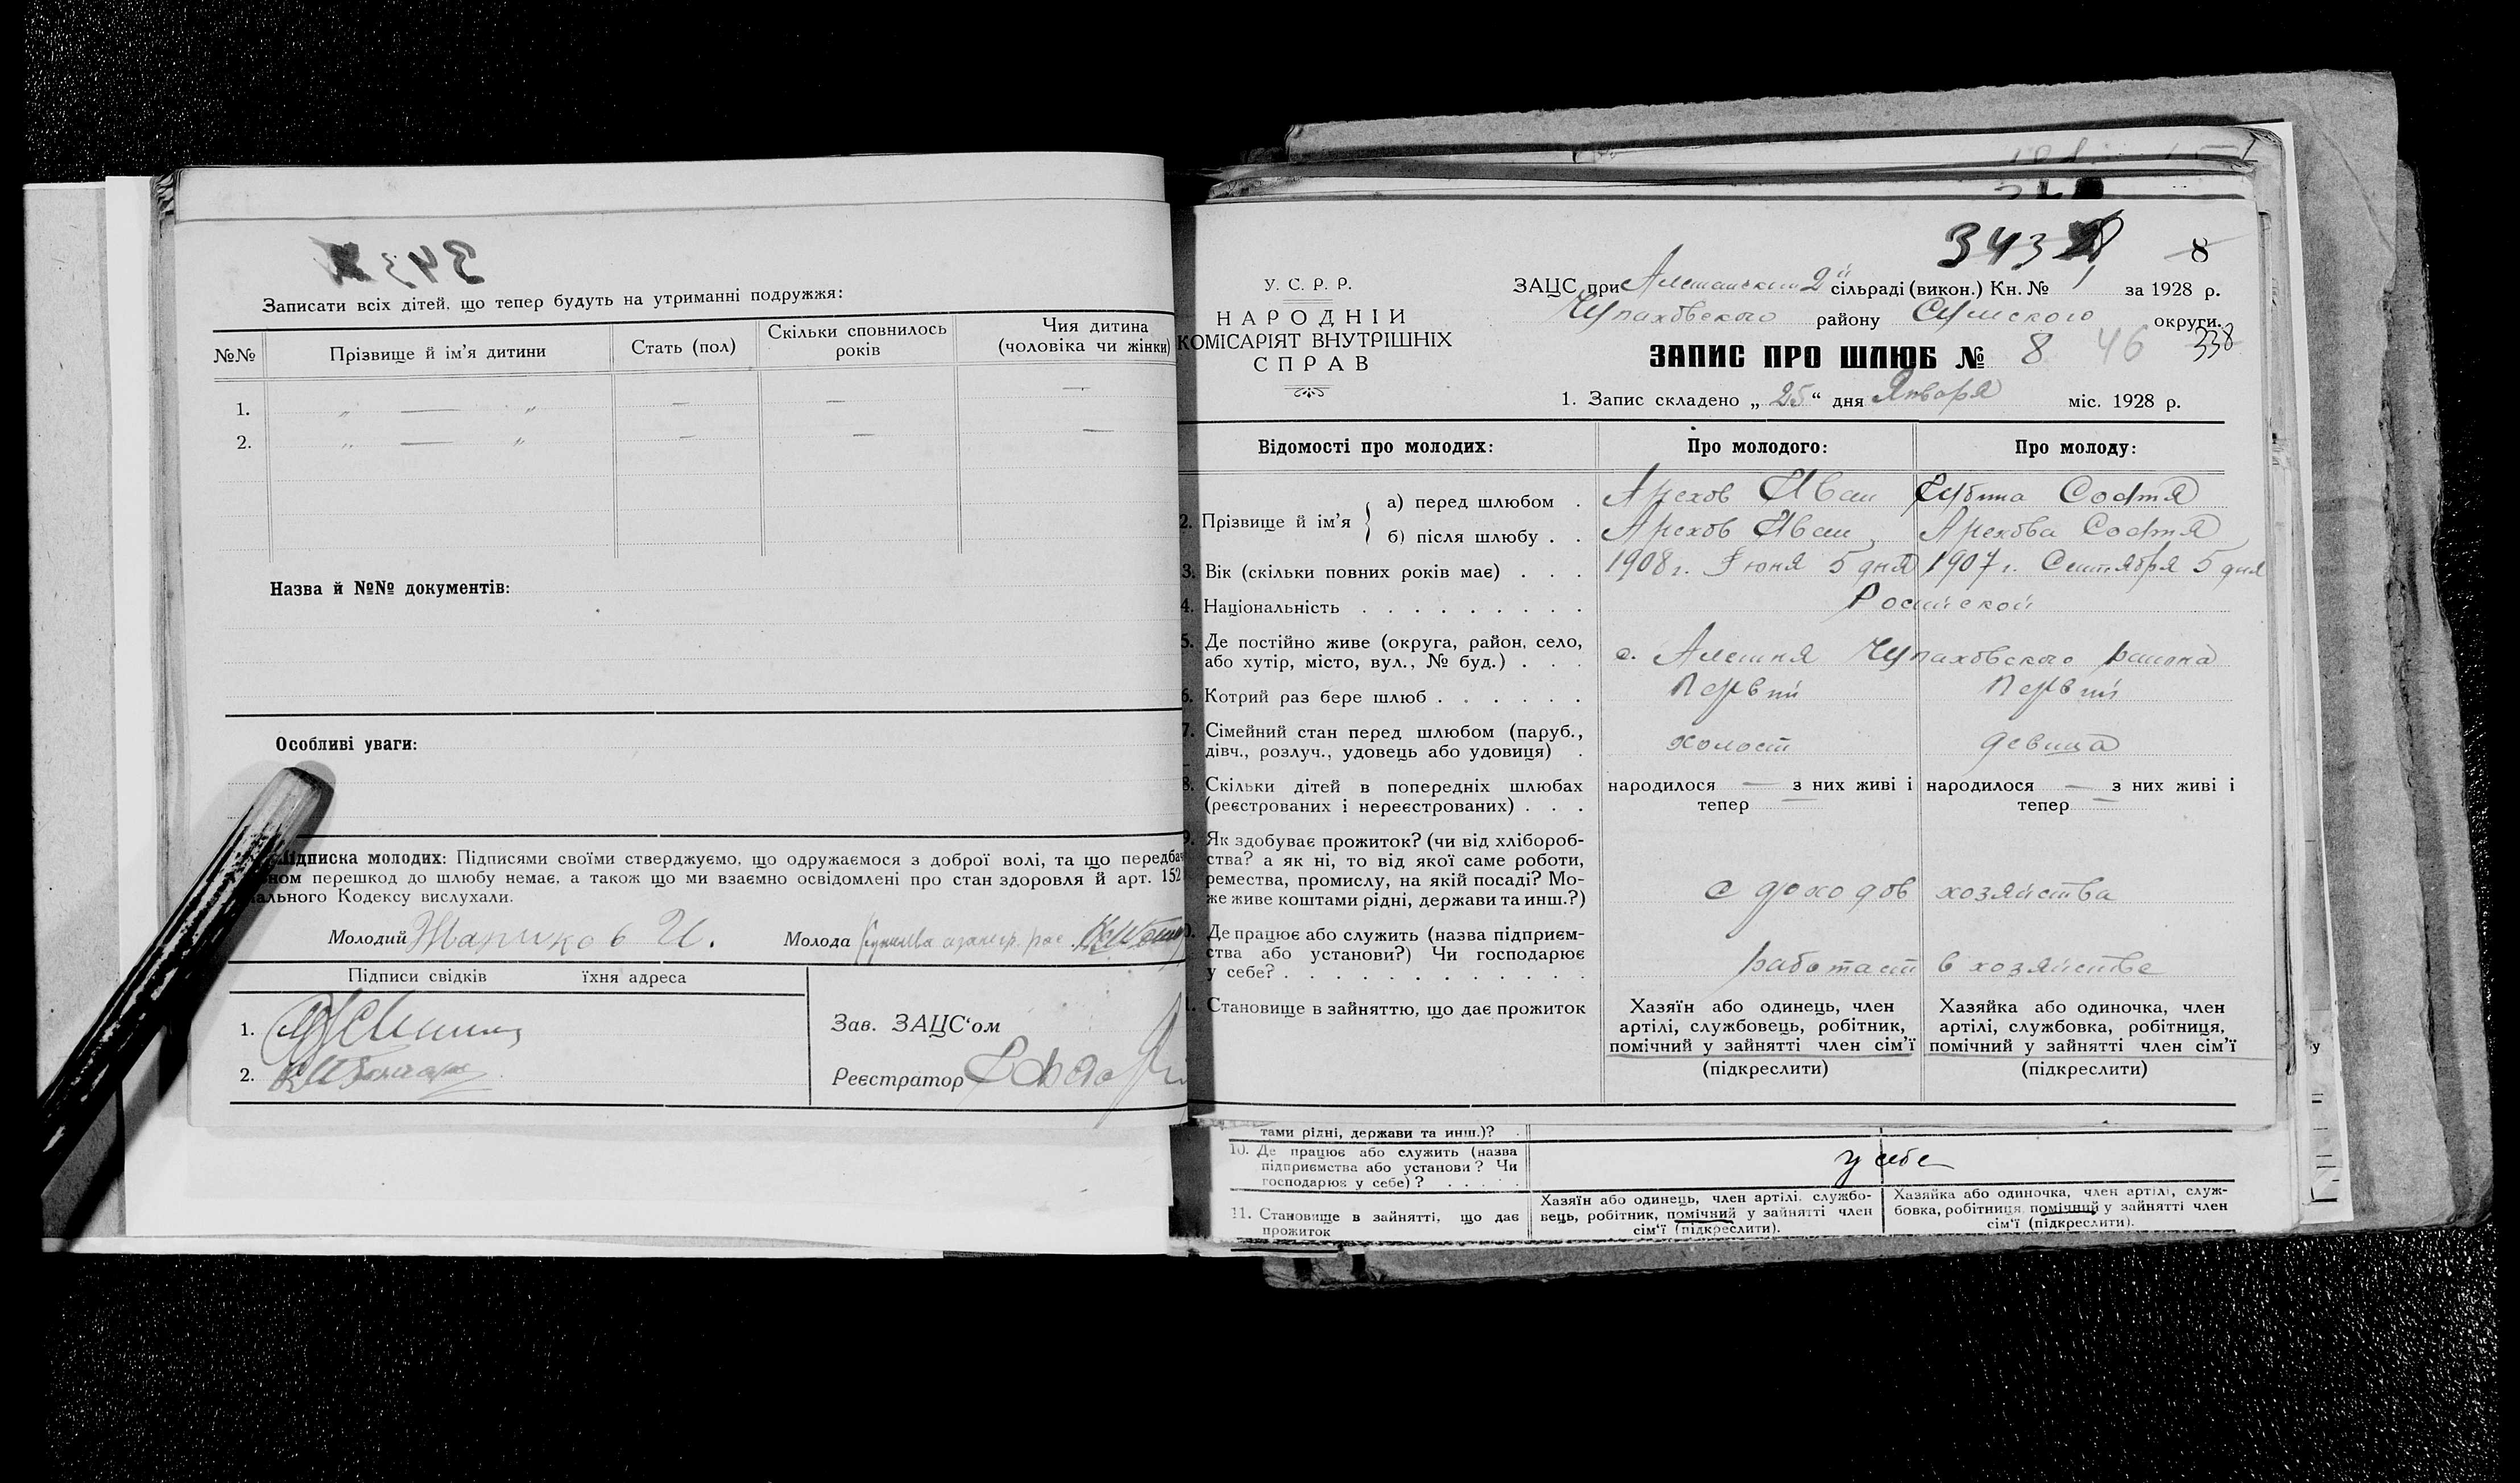 343
Записати всіх дітей, що тепер будуть на утриманні подружжя:
№№ Прізвище й ім'я дитини Стать (пол) Скільки сповнилось років Чия дитина (чоловіка чи жінки)
1. „ — „ — — —
2. „ — „ — — —
Назва й №№ документів:
Особливі уваги:
Підписка молодих: Підписями своїми стверджуємо, що одружаємося з доброї волі, та що передба
ном перешкод до шлюбу немає, а також що ми взаємно освідомлені про стан здоровля й арт. 152
ального Кодексу вислухали.
Молодий Жариков И. Молода
Підписи свідків їхня адреса
1.
2.
Зав. ЗАЦС'ом
Реєстратор
343 8
У. С. Р. Р.
НАРОДНІЙ
КОМІСАРІЯТ ВНУТРІШНІХ
СПРАВ
ЗАЦС при Алешанском 2й сільраді (викон.) Кн. № 1 за 1928 р.
Чупаховского району Сумского округи.
338
ЗАПИС ПРО ШЛЮБ № 8 46
1. Запис складено „ 25 “ дня Января міс. 1928 р.
Відомості про молодих: Про молодого: Про молоду:
2. Прізвище й ім'я { а) перед шлюбом . Арехов Иван Губина Софія
б) після шлюбу . . Арехов Иван Арехова Софія
3. Вік (скільки повних років має) . . . 1908 г. Июня 5 дня 1907 г. Сентября 5 дня
4. Національність . . . . . . . . . Росийской
5. Де постійно живе (округа, район, село,
або хутір, місто, вул., № буд.) . . . с. Алешня Чупаховского района
6. Котрий раз бере шлюб . . . . . . Первий Первий
7. Сімейний стан перед шлюбом (паруб.,
дівч., розлуч., удовець або удовиця) . холост девица
8. Скільки дітей в попередніх шлюбах
(реєстрованих і нереєстрованих) . . .
народилося — з них живі і тепер — народилося — з них живі і тепер —
9. Як здобуває прожиток? (чи від хлібороб-
ства? а як ні, то від якої саме роботи,
ремества, промислу, на якій посаді? Мо-
же живе коштами рідні, держави та инш.?) с доходов хозяйства
Де працює або служить (назва підприєм-
ства або установи?) Чи господарює
у себе? . . . . . . . . . . . . работает в хозяйстве
Становище в зайняттю, що дає прожиток
Хазяїн або одинець, член
артілі, службовець, робітник,
помічний у зайнятті член сім'ї
(підкреслити)
Хазяйка або одиночка, член
артілі, службовка, робітниця,
помічний у зайнятті член сім'ї
(підкреслити)
тами рідні, держави та инш.)?
10. Де працює або служить (назва
підприємства або установи? Чи
господарює у себе) ? . . . . . у себе
11. Становище в зайнятті, що дає
прожиток
Хазяїн або одинець, член артілі, службо-
вець, робітник, помічний у зайнятті член
сім'ї (підкреслити).
Хазяйка або одиночка, член артілі, служ-
бовка, робітниця, помічний у зайнятті член
сім'ї (підкреслити).